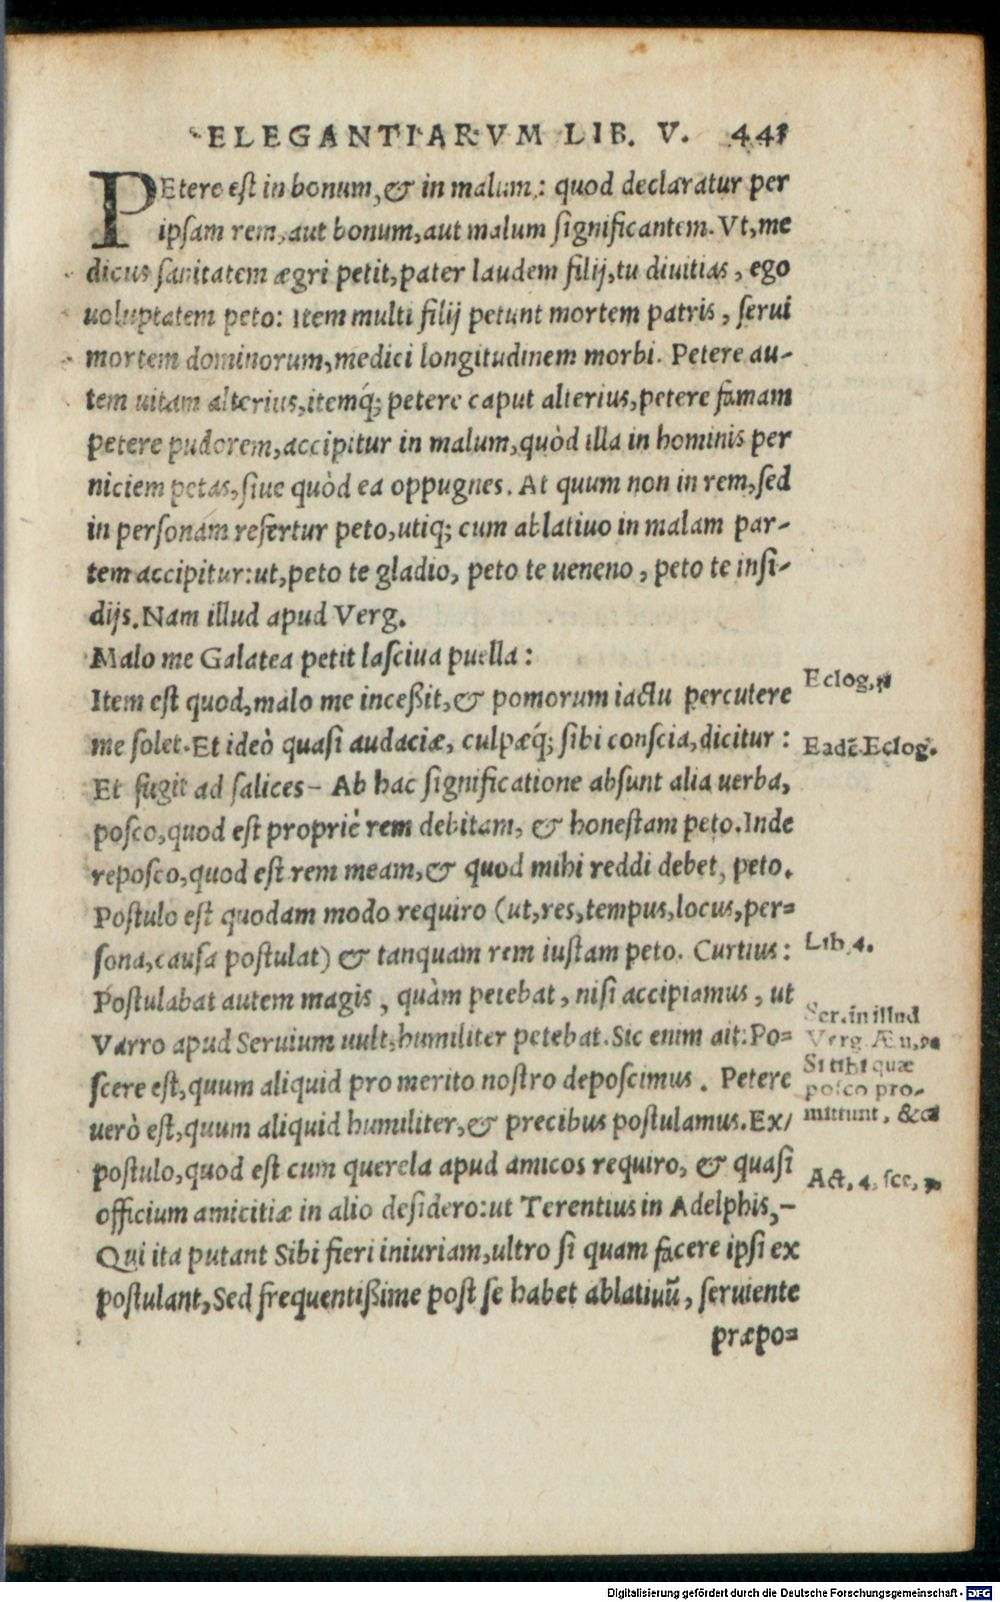 ELEGANTIARVM LIB. V. 441
PEtere est in bonum, & in malum: quod declaratur per
ipsam rem, aut bonum, aut malum significantem. Vt, me
dicus sanitatem ægri petit, pater laudem filij, tu diuitias, ego
uoluptatem peto: Item multi filij petunt mortem patris, serui
mortem dominorum, medici longitudinem morbi. Petere au-
tem uitam alterius, itemq́; petere caput alterius, petere famam
petere pudorem, accipitur in malum, quòd illa in hominis per
niciem petas, siue quòd ea oppugnes. At quum non in rem, sed
in personam refertur peto, utiq; cum ablatiuo in malam par-
tem accipitur: ut, peto te gladio, peto te ueneno, peto te insi-
dijs. Nam illud apud Verg.
Malo me Galatea petit lasciua puella:
Eclog.
Item est quod, malo me inceßit, & pomorum iactu percutere
me solet. Et ideò quasi audaciæ, culpæq́; sibi conscia, dicitur:
Eadē Eclog.
Et fugit ad salices- Ab hac significatione absunt alia uerba,
posco, quod est propriè rem debitam, & honestam peto. Inde
reposco, quod est rem meam, & quod mihi reddi debet, peto.
Postulo est quodam modo requiro (ut, res, tempus, locus, per=
sona, causa postulat) & tanquam rem iustam peto. Curtius:
Lib. 4.
Postulabat autem magis, quàm petebat, nisi accipiamus, ut
Varro apud Seruium uult, humiliter petebat. Sic enim ait: Po=
scere est, quum aliquid pro merito nostro deposcimus. Petere
Ser. in illud
Verg. Æn.
Si tibi quæ
posco pro-
mittunt, &c
uerò est, quum aliquid humiliter, & precibus postulamus. Ex/
postulo, quod est cum querela apud amicos requiro, & quasi
Act. 4. sce.
officium amicitiæ in alio desidero: ut Terentius in Adelphis, -
Qui ita putant Sibi fieri iniuriam, ultro si quam facere ipsi ex
postulant, Sed frequentißime post se habet ablatiuū, seruiente
præpo=
Digitalisierung gefördert durch die Deutsche Forschungsgemeinschaft - DFG